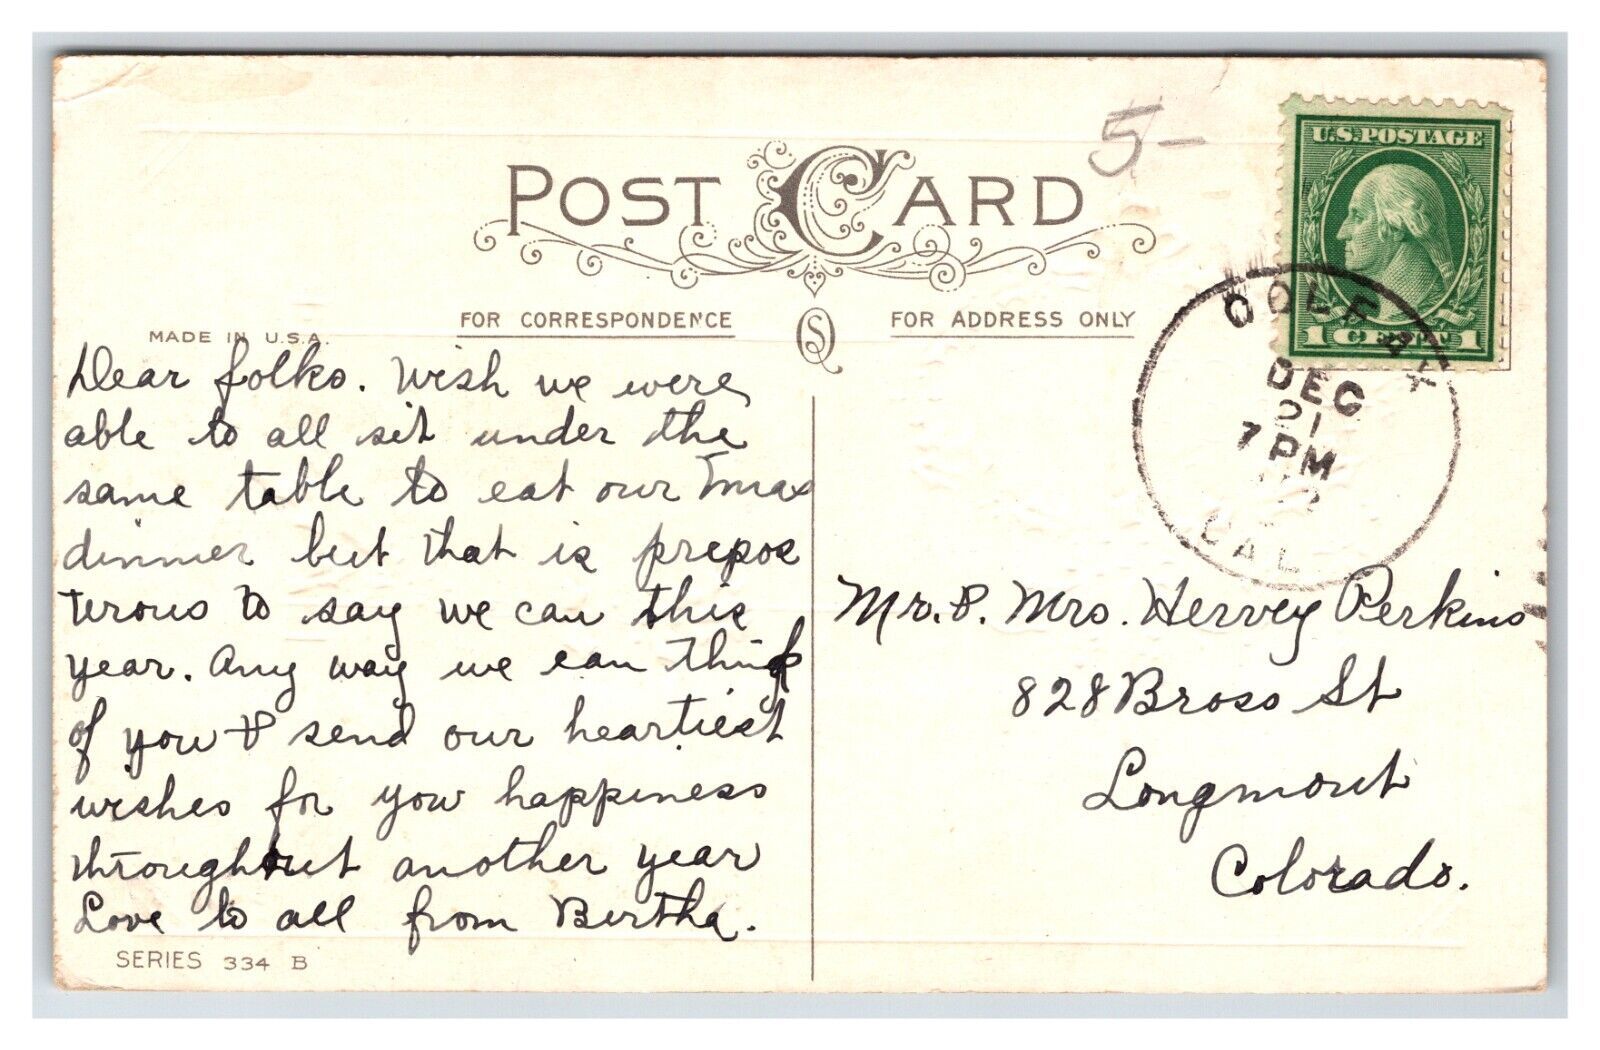 5-
U.S. POSTAGE
POST CARD
1 CENT 1
COLFAX
DEC
21
7 PM
CAL
FOR CORRESPONDENCE
FOR ADDRESS ONLY
MADE IN U.S.A.
Dear folks. Wish we were
able to all sit under the
same table to eat our Xmax
dinner but that is prepos
terous to say we can this
year. Any way we can think
of you & send our heartiest
wishes for you happiness
throughout another year
Love to all from Bertha.
SERIES 334 B
Mr. & Mrs. Hervey Perkins
828 Bross St
Longmont
Colorado.